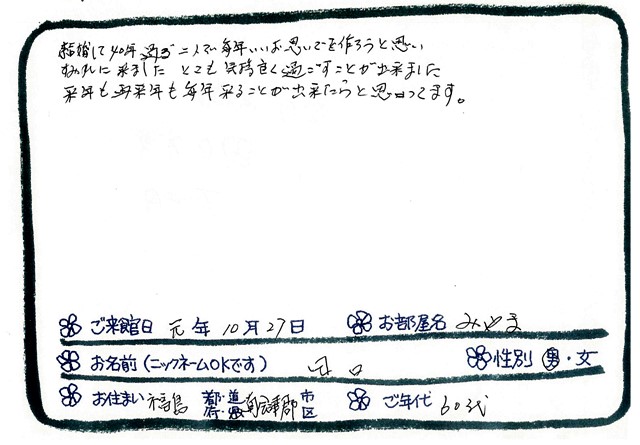 結婚して40年過ぎ 二人で毎年いい思いでを作ろうと思い
に来ました とても気持良く過ごすことが出来ました
来年も再来年も毎年来ることが出来たらと思ってます。
ご来館日 元年10月27日 お部屋名 みやま
お名前(ニックネームOKです) 性別 男・女
お住まい 福島 都・道 府・県 南会津郡 市 区 ご年代 60代